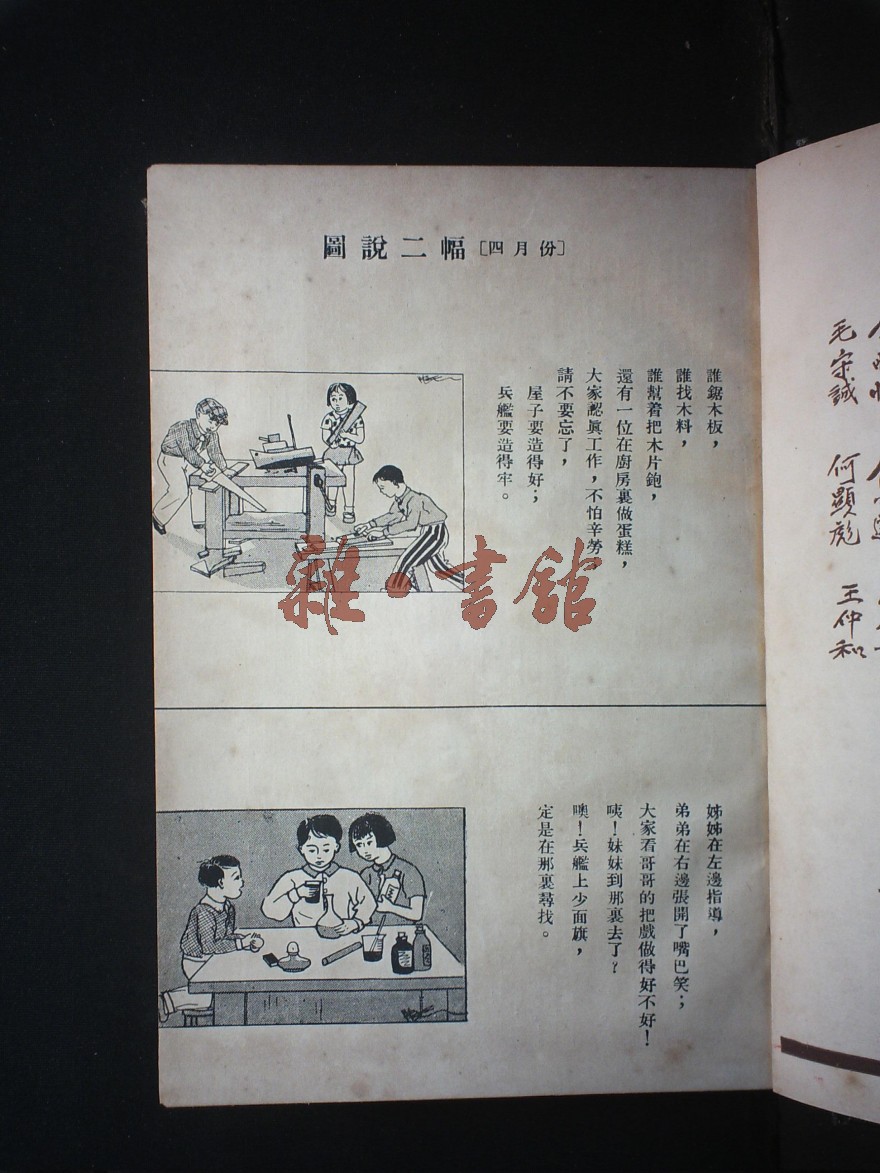 圖說二幅〔四月份〕
誰鋸木板，
誰找木料，
誰幫着把木片鉋，
還有一位在廚房裏做蛋糕，
大家認眞工作，不怕辛勞，
請不要忘了，
屋子要造得好；
兵艦要造得牢。
雜·書館
姊姊在左邊指導，
弟弟在右邊張開了嘴巴笑；
大家看哥哥的把戲做得好不好！
咦！妹妹到那裏去了？
噢！兵艦上少面旗，
定是在那裏尋找。
毛宗誠 何顯彪 王仲和